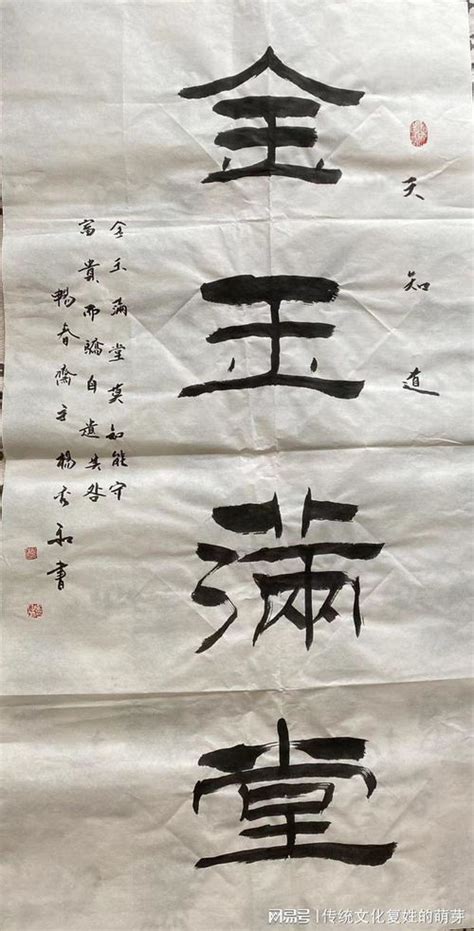 天知道
金玉满堂
金玉满堂莫知能守
富貴而驕自遺其咎
暢春齋主楊和書
网易号 | 传统文化复姓的萌芽